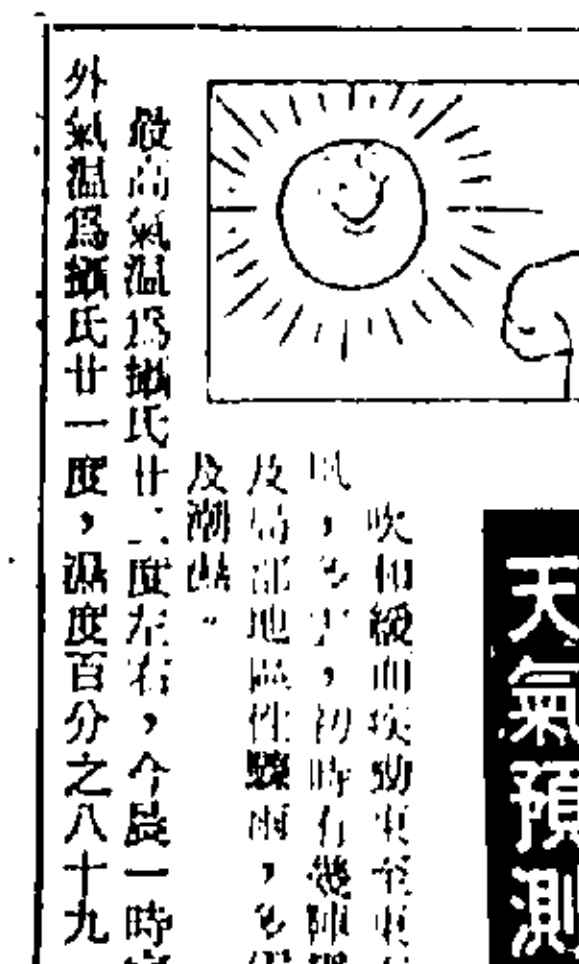 天氣預測
吹和緩而疾勁東至東
風，多雲，初時有幾陣
及局部地區性驟雨，多
及潮濕。
最高氣溫爲攝氏廿二度左右，今晨一時
外氣溫爲攝氏廿一度，濕度百分之八十九